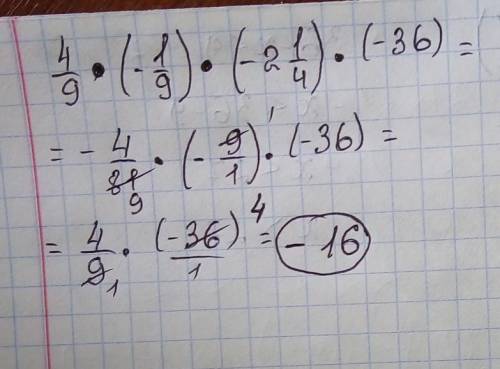 4/9 • (-1/9) • (-2 1/4) • (-36) =
= - 4/81 9 • (- 9/1) 1 • (-36) =
= 4/9 1 • (-36)/1 4 = -16